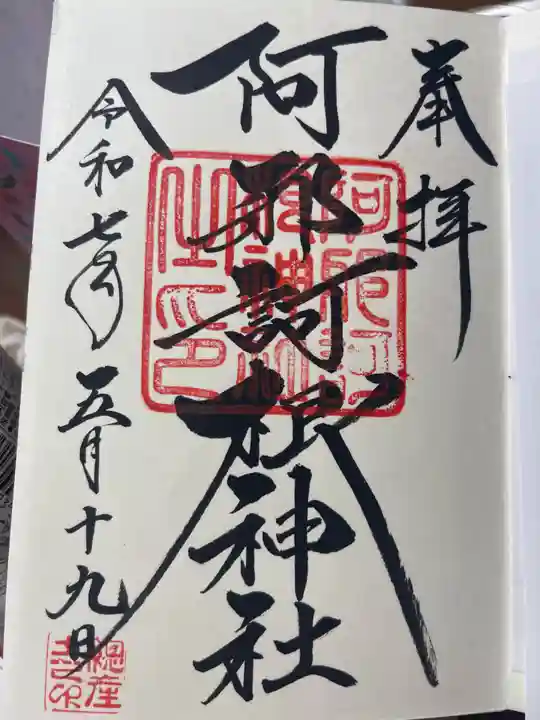 奉拝
阿邪訶根神社
令和七年五月十九日